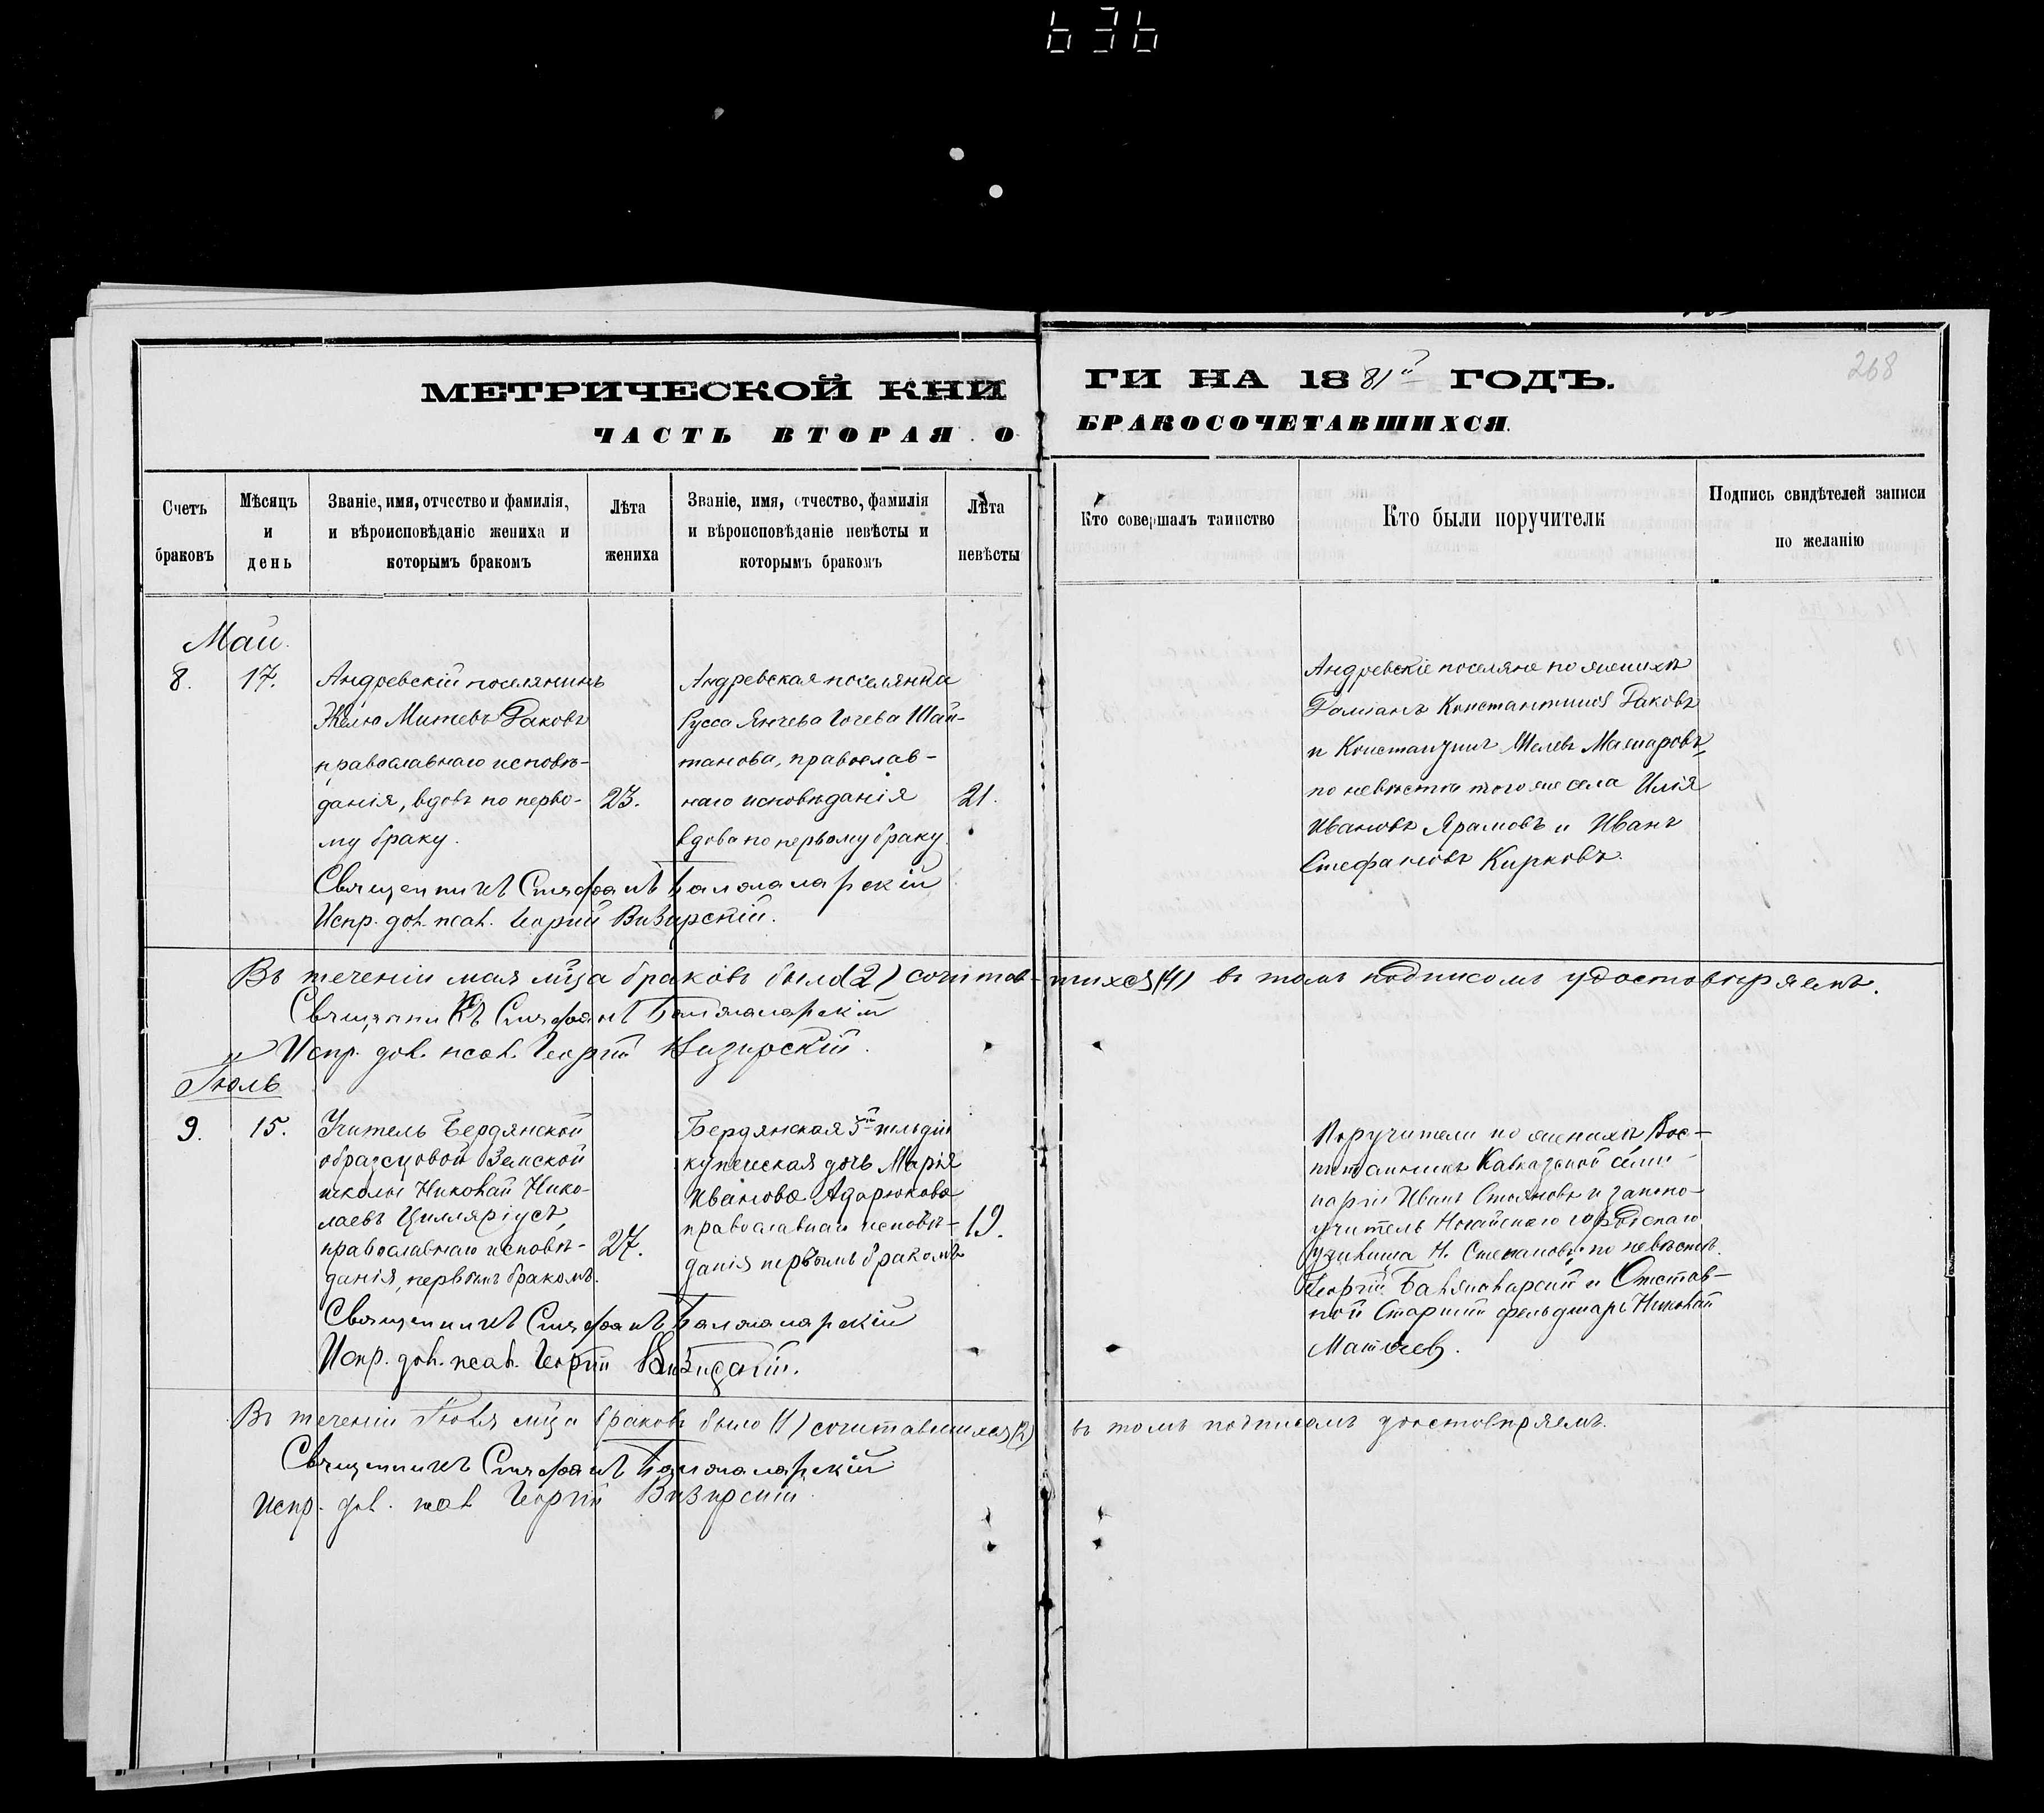 636
268
МЕТРИЧЕСКОЙ КНИ ГИ НА 1881й ГОДЪ.
ЧАСТЬ ВТОРАЯ О БРАКОСОЧЕТАВШИХСЯ.
Счетъ браковъ
Мѣсяцъ и день
Званіе, имя, отчество и фамилія,
и вѣроисповѣданіе жениха и
которымъ бракомъ
Лѣта жениха
Званіе, имя, отчество, фамилія
и вѣроисповѣданіе невѣсты и
которымъ бракомъ
Лѣта невѣсты
Кто совершалъ таинство
Кто были поручители
Подпись свидѣтелей записи
по желанію
Май.
8.
17.
Андревскій поселянинъ
Желю Митевъ Раковъ
православнаго исповѣ-
данія, вдовъ по перво-
му браку.
23.
Андревская поселянка
Русса Янчева Гочева Шай-
танова, православ-
наго исповѣданія
вдова по первому браку.
21.
Андревскіе поселяне по женихѣ
Даміанъ Константиновъ Раковъ
и Константинъ Желевъ
по невѣстѣ того же села Илія
Ивановъ Ярамовъ и Иванъ
Стефановъ Кирковъ.
Священникъ Стефанъ
Испр. дол. псал. Георгій Визирскій.
Въ теченіи мая мѣца браковъ было (2) сочетав-шихся (4) въ томъ подписомъ удостовѣряемъ.
Священникъ Стефанъ
Испр. дол. псал. Георгій Визирскій.
Іюль
9.
15.
Учитель Бердянской
образцовой Земской
школы Николай Нико-
лаевъ Цилляріусъ,
православнаго исповѣ-
данія, первымъ бракомъ.
27.
Бердянская 3й гильдіи
купеческая дочь Марія
Иванова Адарюкова
православнаго исповѣ-
данія первымъ бракомъ
19.
Поручители по женихѣ Вос-
питанникъ Кавказской семи-
наріи Иванъ Стояновъ и законо-
учитель Ногайскаго городскаго
училища Н. Степановъ по невѣстѣ.
Георгій и Отстав-
ной Старшій фельдшаръ Николай
Священникъ Стефанъ
Испр. дол. псал. Георгій Визирскій.
Въ теченіи Іюля мѣца браковъ было (1) сочетавшихся (2) въ томъ подписомъ удостовѣряемъ.
Священникъ Стефанъ
Испр. дол. псал. Георгій Визирскій